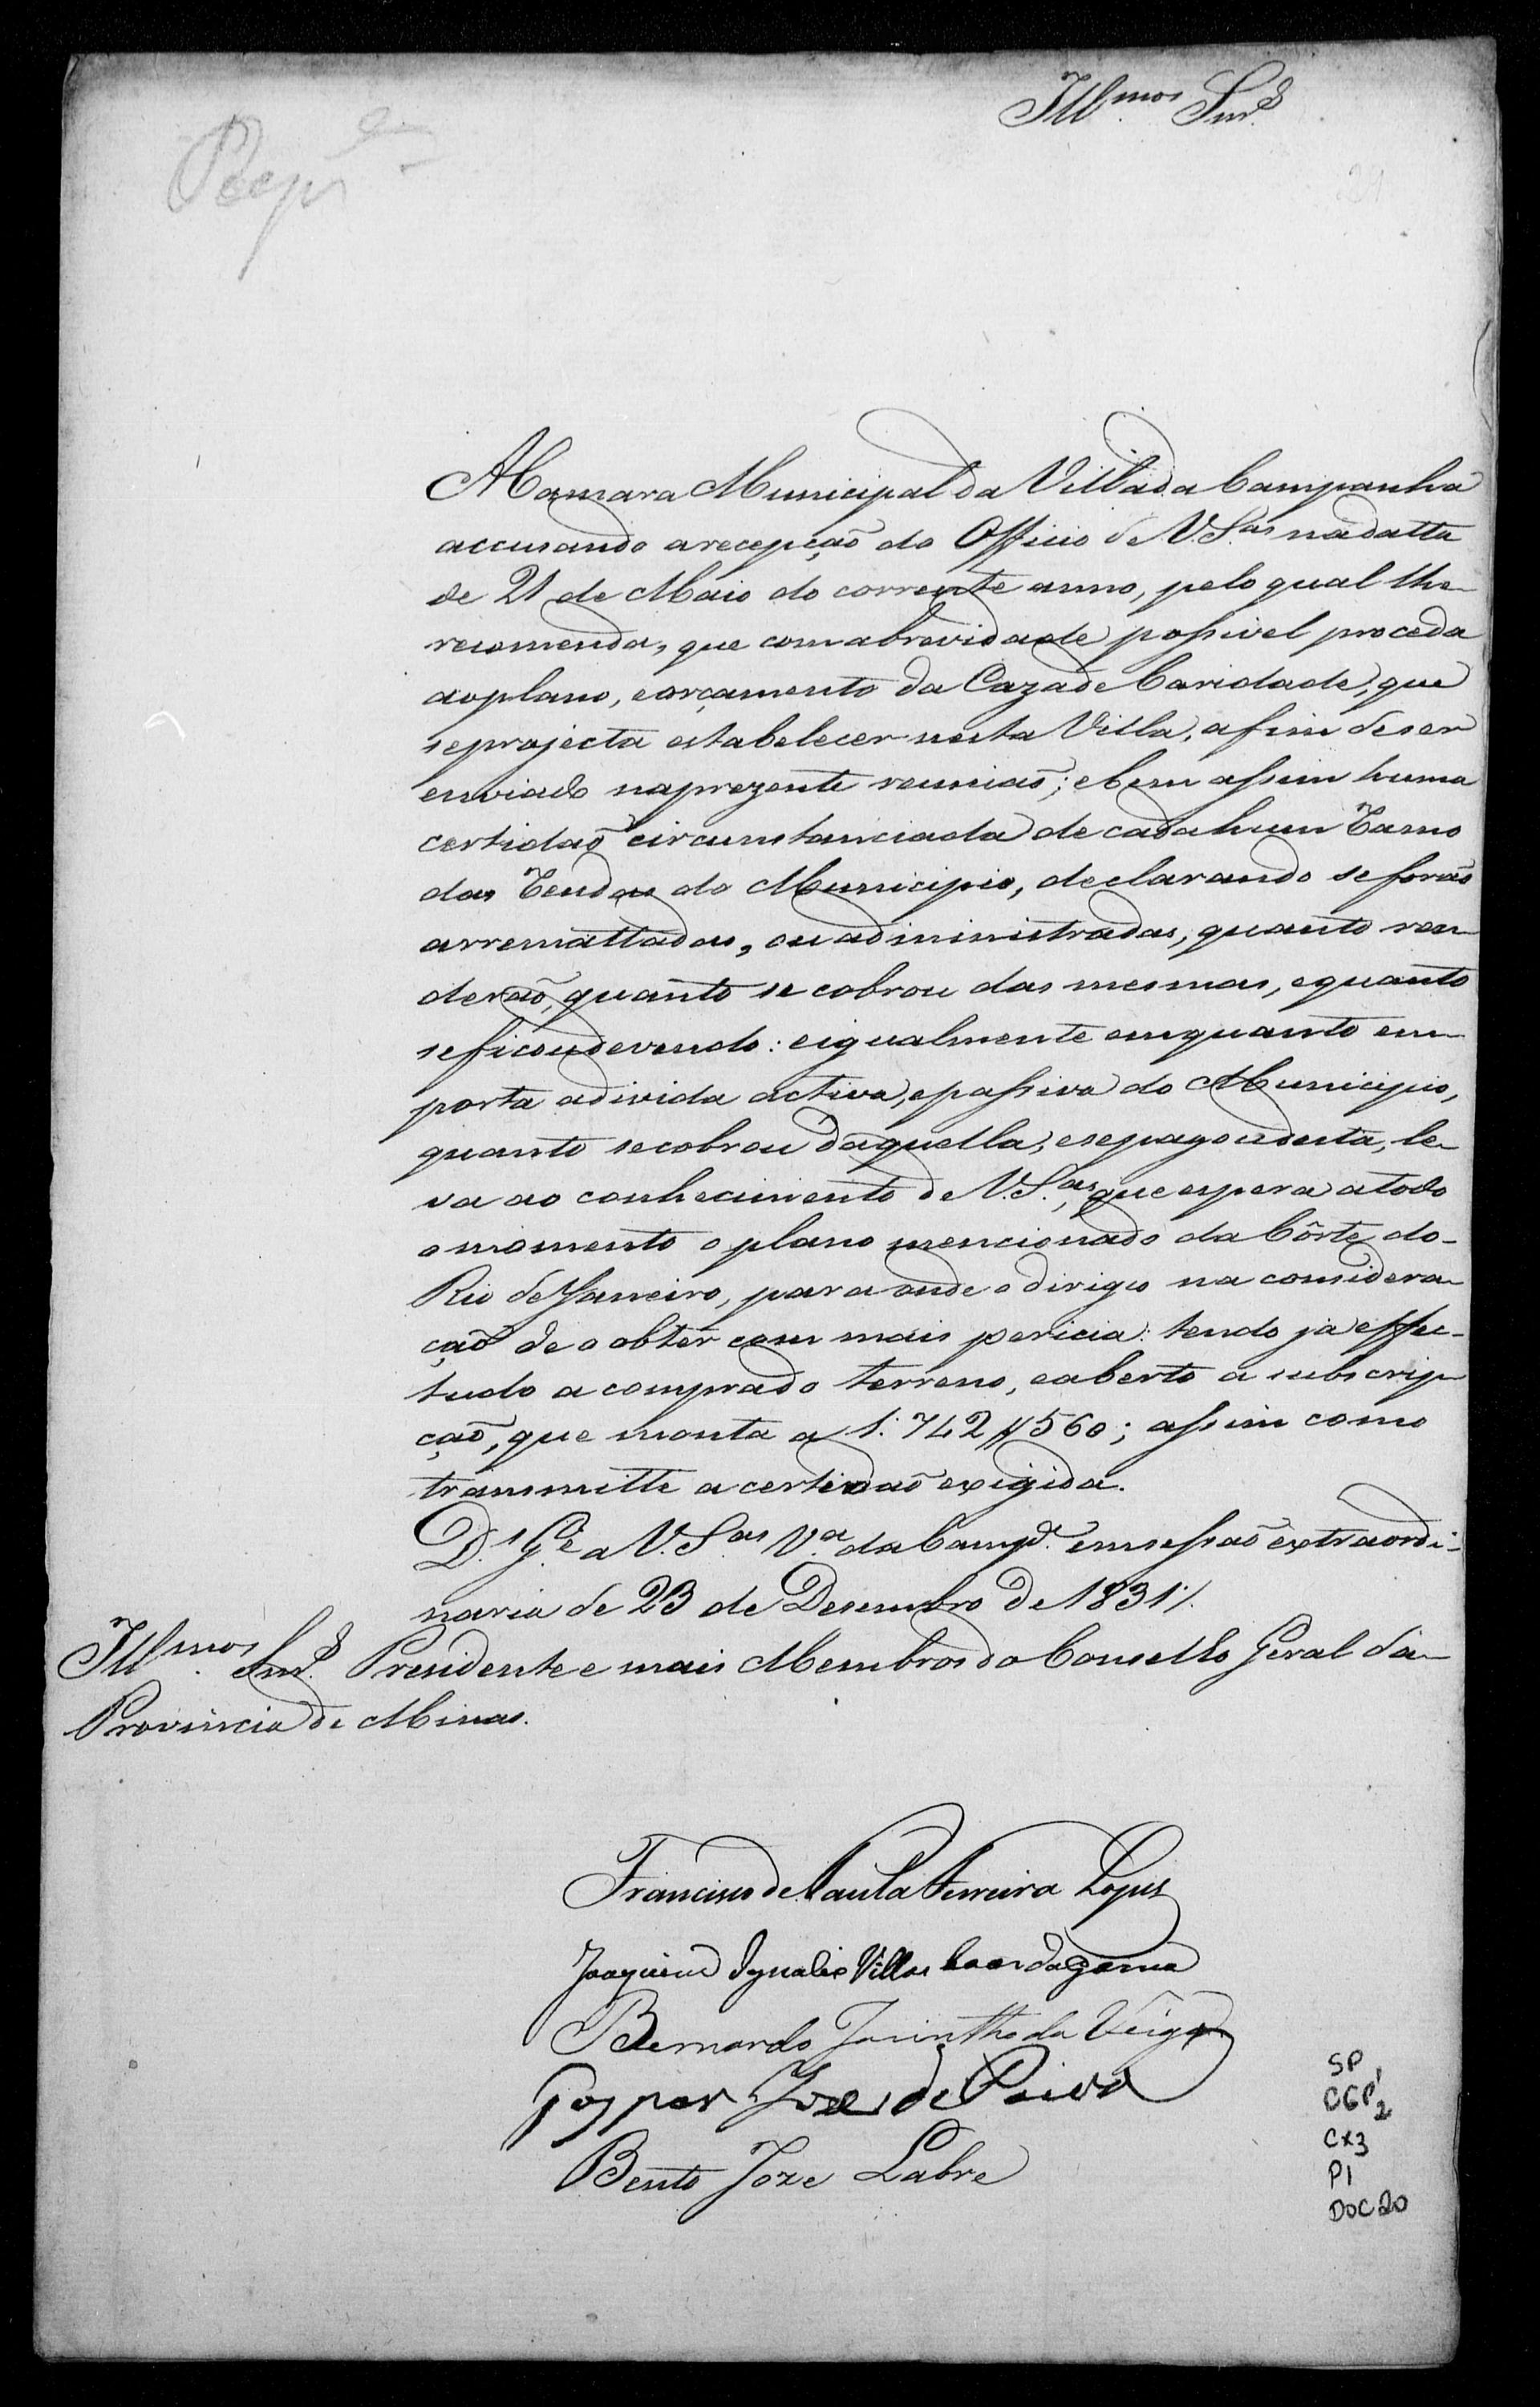 Illmos Snrs
21
A Camara Municipal da Villa da Campanha
accusando a recepçaõ do Officio de V. S.as na datta
de 21 de Maio do corrente anno, pelo qual lhe
recomenda, que com a brevidade possivel proceda
ao plano, e orçamento da Caza de Caridade, que
se projecta estabelecer nesta Villa, a fim de ser
enviado na prezente reuniaõ; e bem assim huma
certidaõ circunstanciada de cada hum Ramo
das Rendas do Municipio, declarando se foraõ
arremattadas, ou administradas, quanto ren-
deraõ, quanto se cobrou das mesmas, e quanto
se ficou devendo: e igualmente em quanto em-
porta a divida activa, e passiva do Municipio,
quanto se cobrou daquella, e se pagou desta, le-
va ao conhecimento de V. S.as, que espera a todo
o momento o plano mencionado da Côrte do
Rio de Janeiro, para onde o dirigio na considera-
çaõ de o obter com mais pericia: tendo ja effec-
tudo a compra do terreno, e aberto a subscrip-
çaõ, que monta a 1:742$560; assim como
transmitte a certidaõ exigida.
D.s G.e a V. S.as V.a da Camp.a em sessaõ extraordi-
naria de 23 de Desembro de 1831/.
Illmos Snrs Presidente e mais Membros do Conselho Geral da
Provincia de Minas.
Francisco de Paula Ferreira Lopes
Joaquim Ignacio Villas boas da gama
Bernardo Jacintho da Veiga
Gaspar Jose de Paiva
Bento Joze Labre
SP
CGP'2
CX3
P1
DOC20